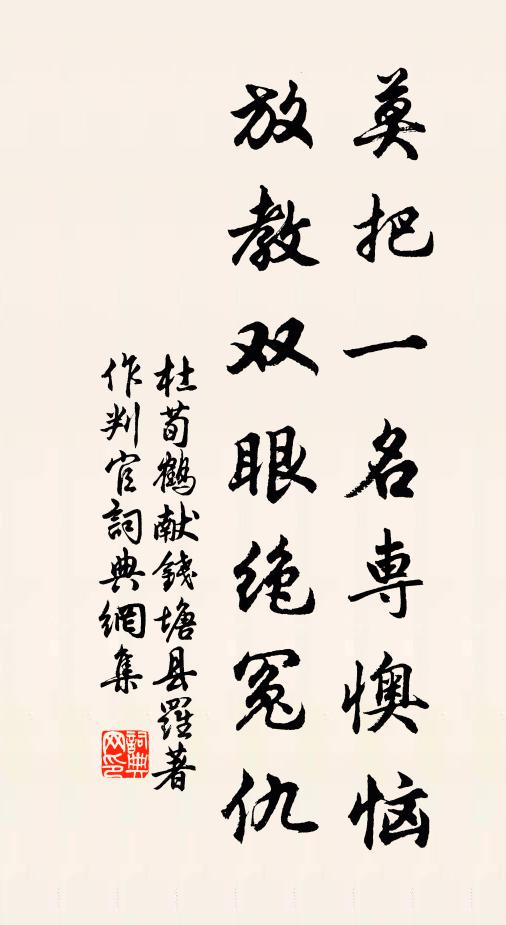 莫把一名専懊恼
放教双眼绝冤仇
杜荀鹤献钱塘县羅著
作判官詞典網集
詞典
网印